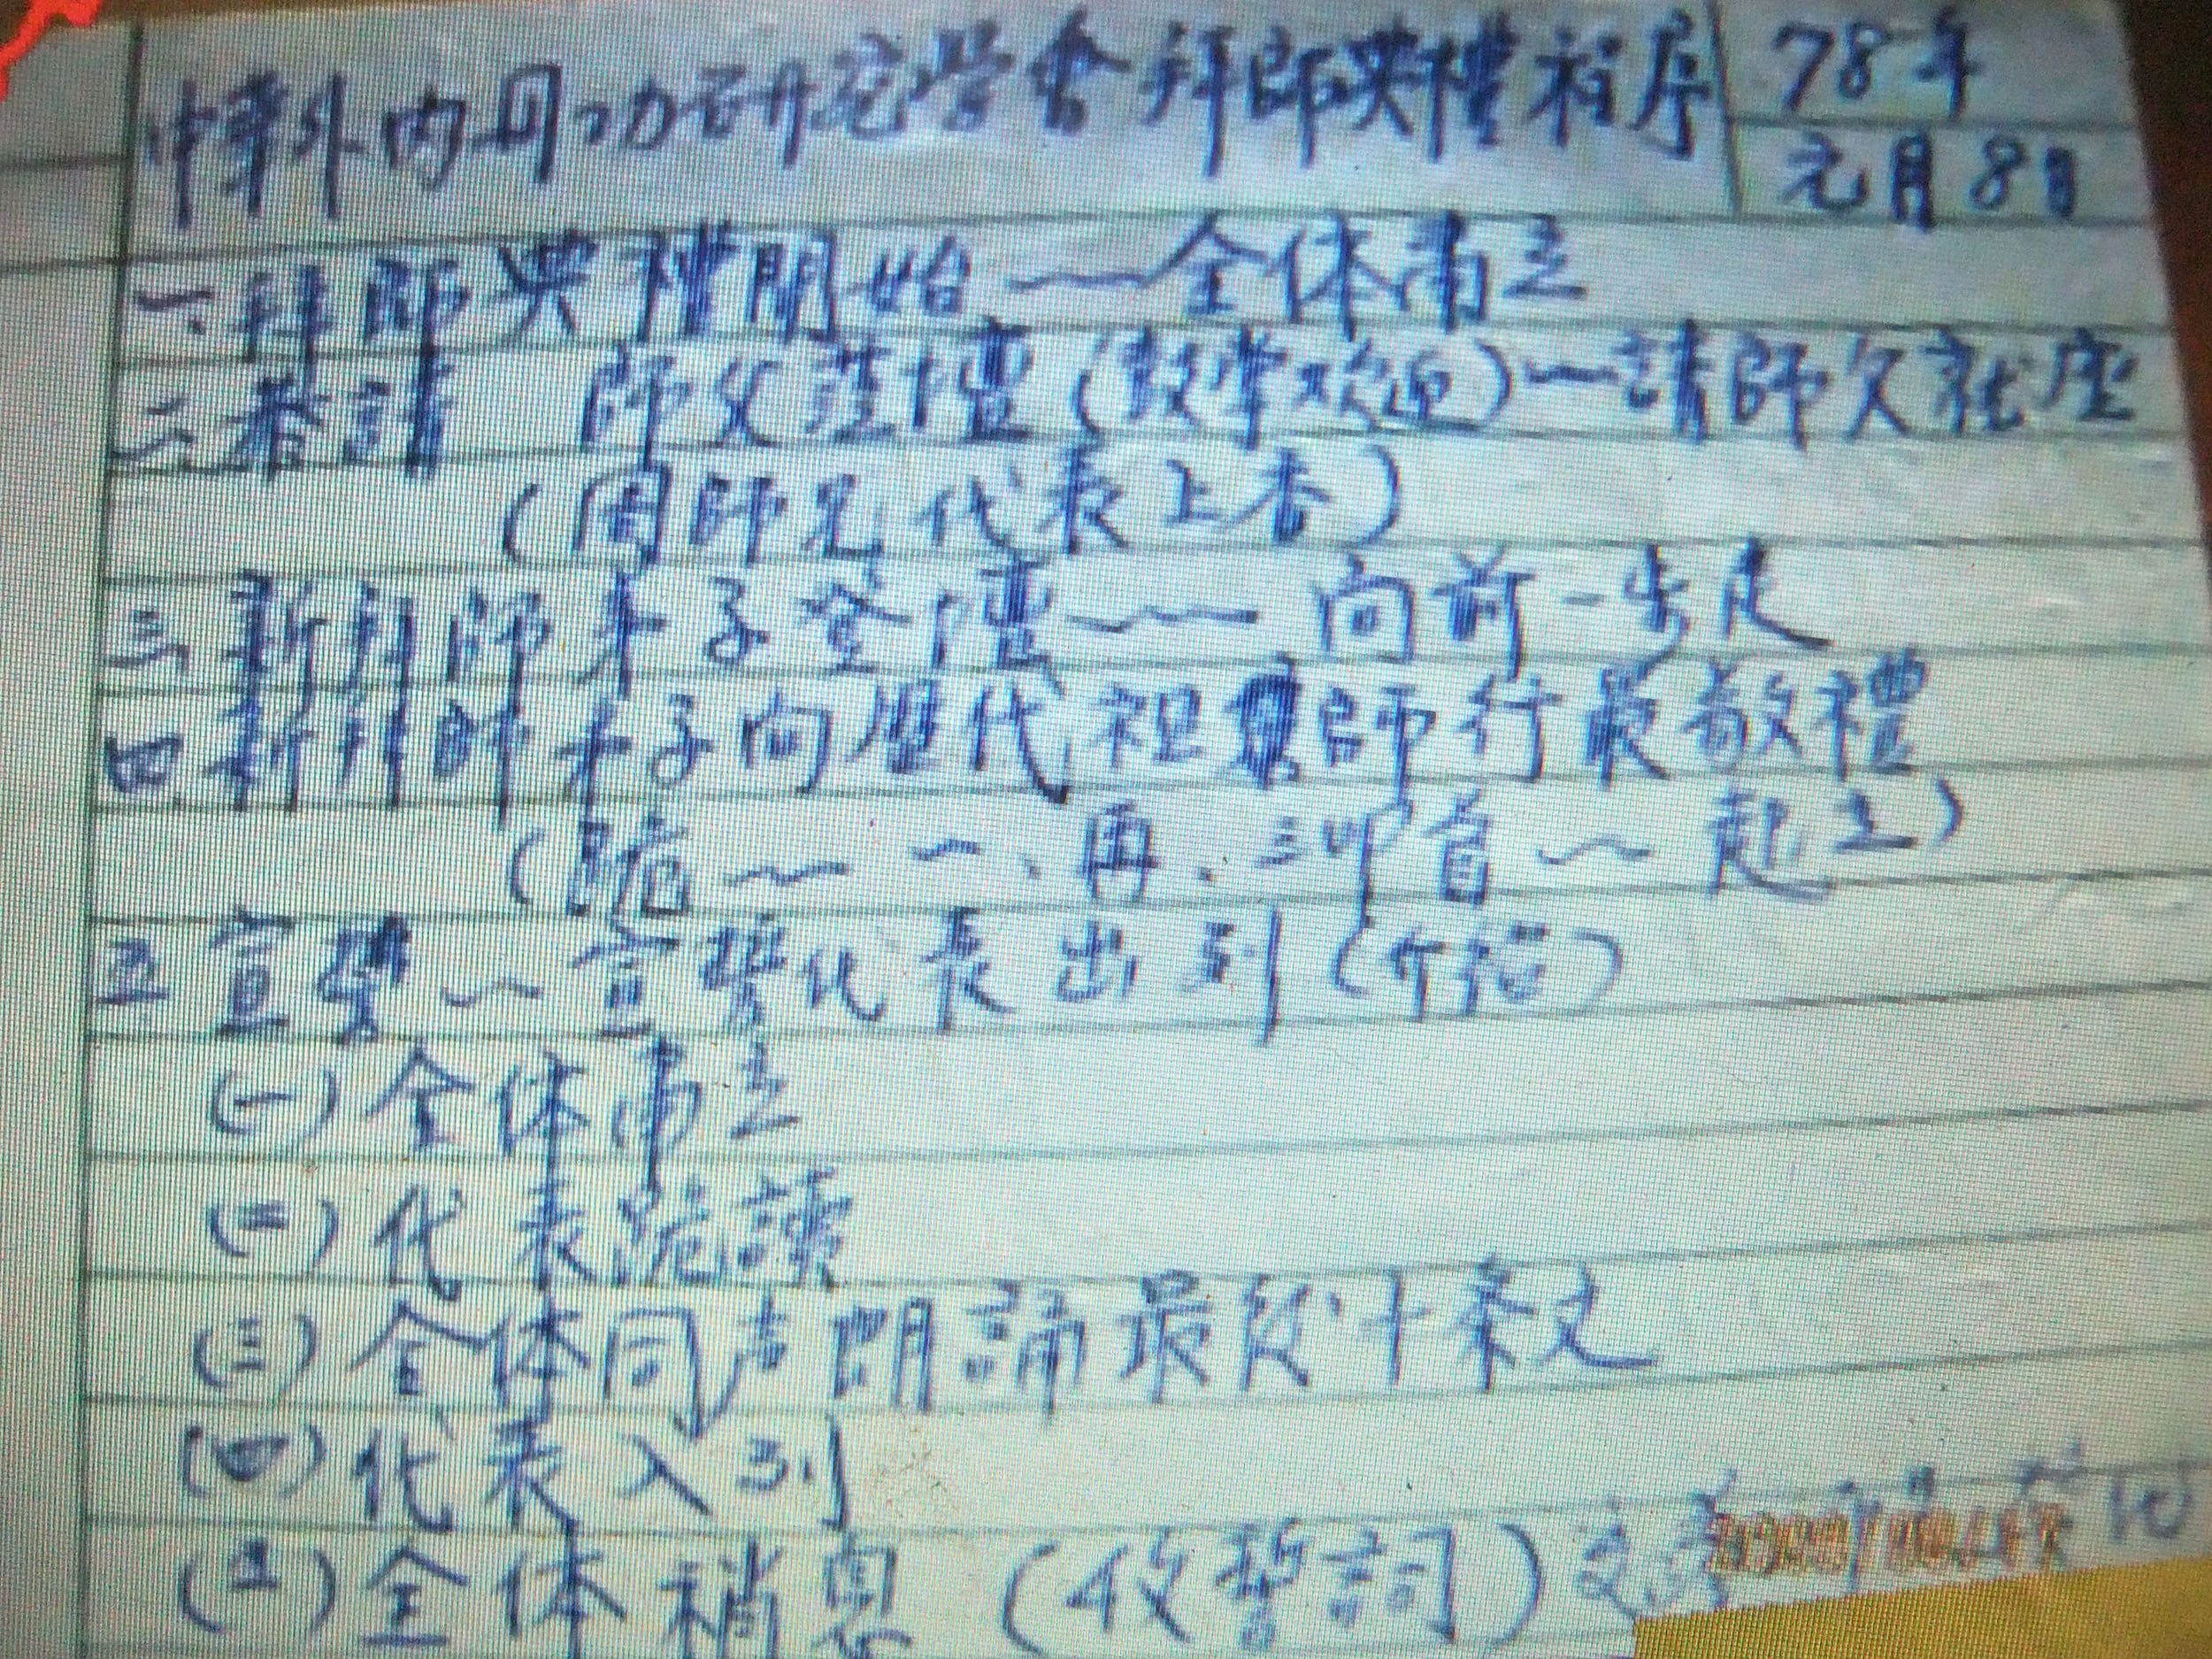 中華外內丹功研究學會拜師典禮程序
78年
元月8日
一、拜師典禮開始~~全体肅立
二、恭請 師父蒞壇(鼓掌欢迎)~請師父就座
(周師兄代表上香)
三、新拜師弟子全壇~~向前一步
四、新拜師弟子向歷代祖師行最敬禮
(跪~一、再、三叩首~起立)
五、宣誓~宣誓代表出列
(一)全体肅立
(二)代表跪讀
(三)全体同声朗誦最後十条文
(四)代表入列
(五)全体稍息 (收誓詞)